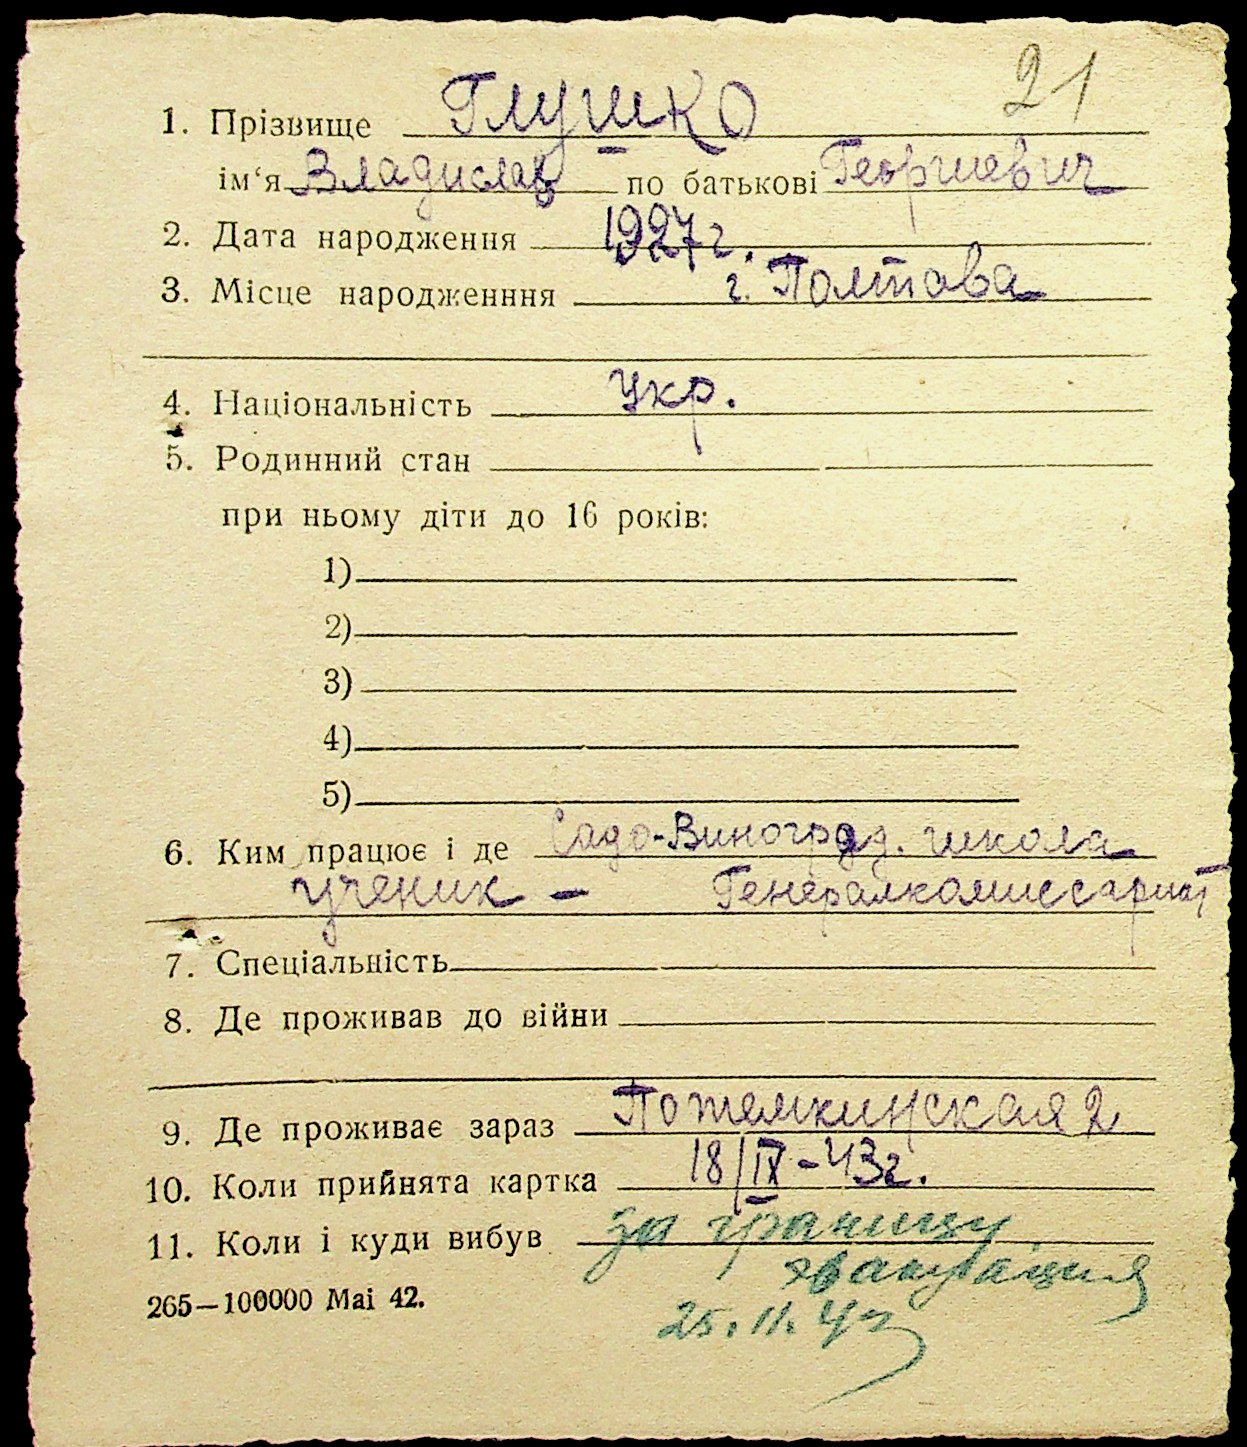 21
1. Прізвище Глушко
ім‘я Владислав по батькові Георгиевич
2. Дата народження 1927 г.
3. Місце народженння г. Полтава
4. Національність Укр.
5. Родинний стан
при ньому діти до 16 років:
1)
2)
3)
4)
5)
6. Ким працює і де Садо-Виноград. школа
ученик – Генералкомиссариат
7. Спеціальність
8. Де проживав до війни
9. Де проживає зараз Потемкинская 2
10. Коли прийнята картка 18/IX-43г.
11. Коли і куди вибув за границу
эвакуация
265—100000 Mai 42.
25.11.43